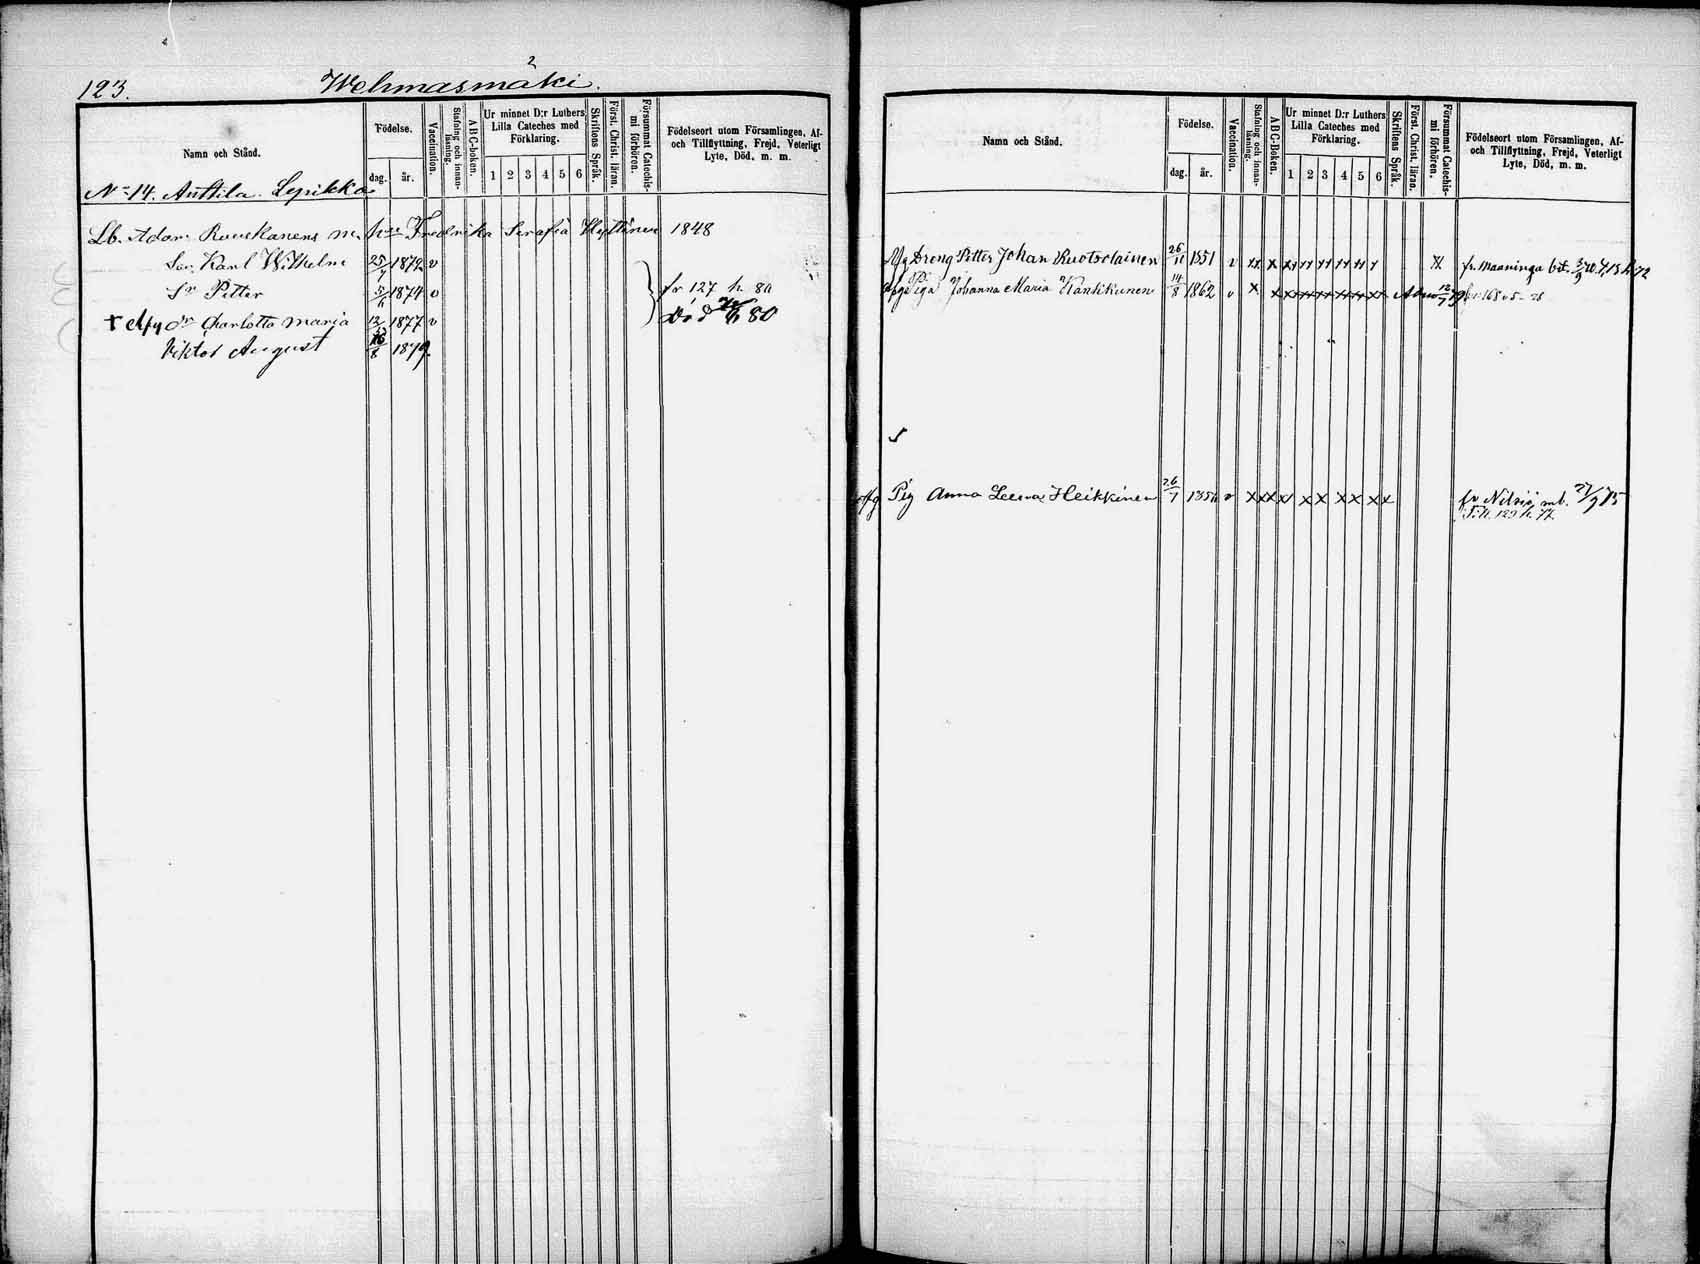 2
123. Wehmasmäki.
Namn och Stånd.
Födelse.
dag. år.
Vaccination.
Stafning och innanläsning.
ABC-boken.
Ur minnet D:r Luthers Lilla Cateches med Förklaring.
1 2 3 4 5 6
Skriftens Språk.
Först. Christ. läran.
Försummat Catechismi förhören.
Födelseort utom Församlingen, Af- och Tillflyttning, Frejd, Veterligt Lyte, Död, m. m.
No 14. Anttila Lepikko
Lb. Adam Ruuskanens Fredrika Serafia Hyttinen 1848
Son Karl Wilhelm 25/7 1872 v
Sn Petter 5/6 1874 v fr 127 h. 80
† Afg dr Charlotta Maria 1877 v Död 80
Viktor August 8 1879.
Namn och Stånd.
Födelse.
dag. år.
Vaccination.
Stafning och innanläsning.
ABC-boken.
Ur minnet D:r Luthers Lilla Cateches med Förklaring.
1 2 3 4 5 6
Skriftens Språk.
Först. Christ. läran.
Försummat Catechismi förhören.
Födelseort utom Församlingen, Af- och Tillflyttning, Frejd, Veterligt Lyte, Död, m. m.
Afg Dreng Petter Johan Ruotsalainen 26/11 1851 v fr. Maaninga bet.
Piga Johanna Maria 14/8 1862 v
Afg Pig Anna Leena Heikkinen 26/1 v x x x x x x x x x x fr Nilsiä mb. 27/9 75
129 h. 77.